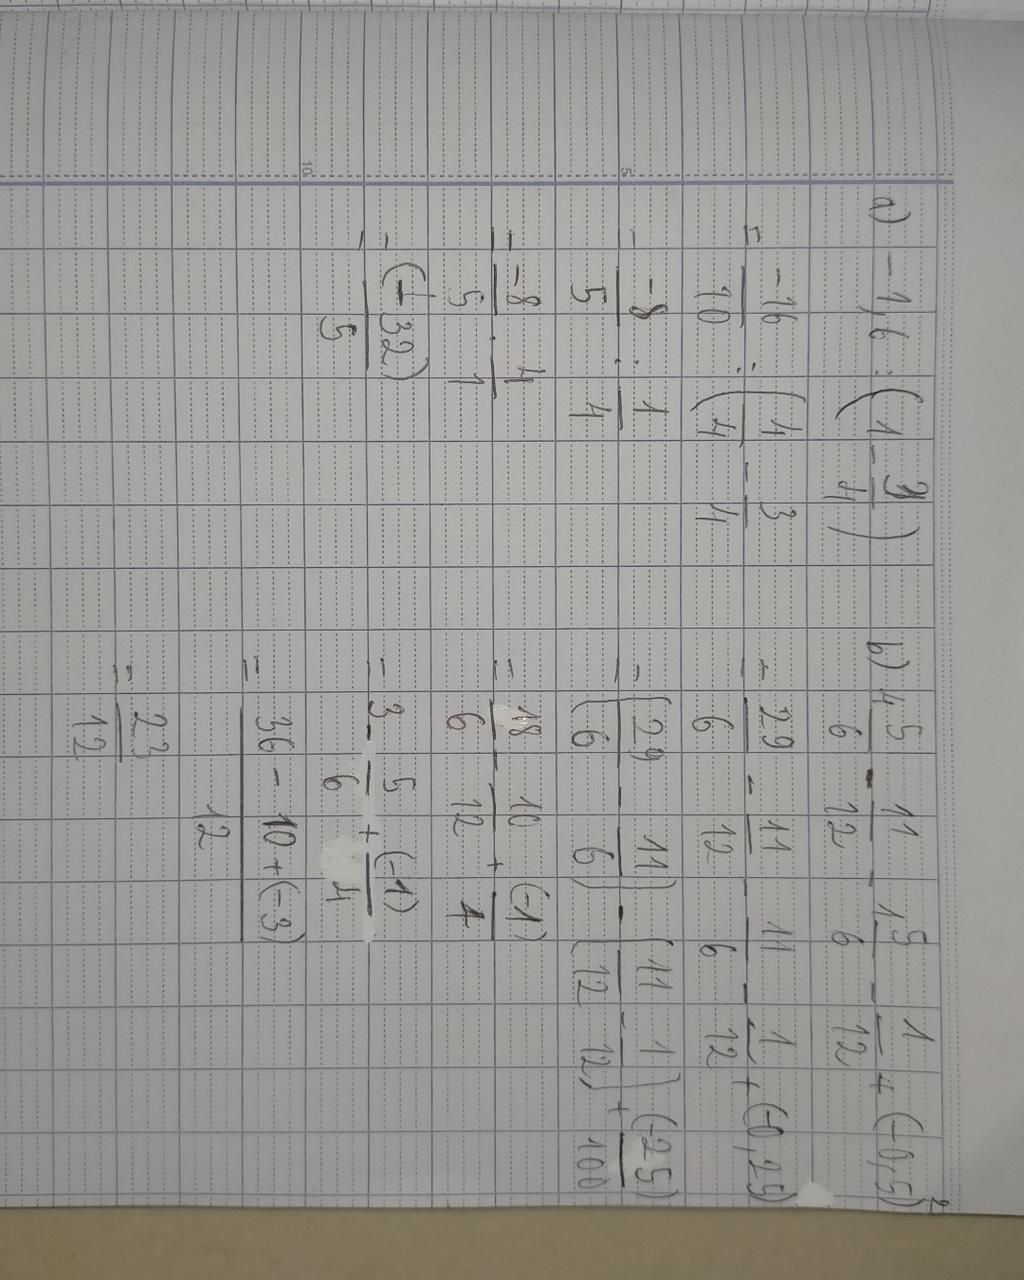 a) -1,6 : (1 - 3/4)
= -16/10 : (4/4 - 3/4)
= -8/5 : 1/4
= -8/5 . 4/1
= (-32)/5
b) 4 5/6 - 11/12 - 1 5/6 - 1/12 + (-0,5)²
= 29/6 - 11/12 - 11/6 - 1/12 + (-0,25)
= (29/6 - 11/6) - (11/12 - 1/12) + (-25)/100
= 18/6 - 10/12 + (-1)/4
= 3 - 5/6 + (-1)/4
= 36 - 10 + (-3)/12
= 23/12
5
10